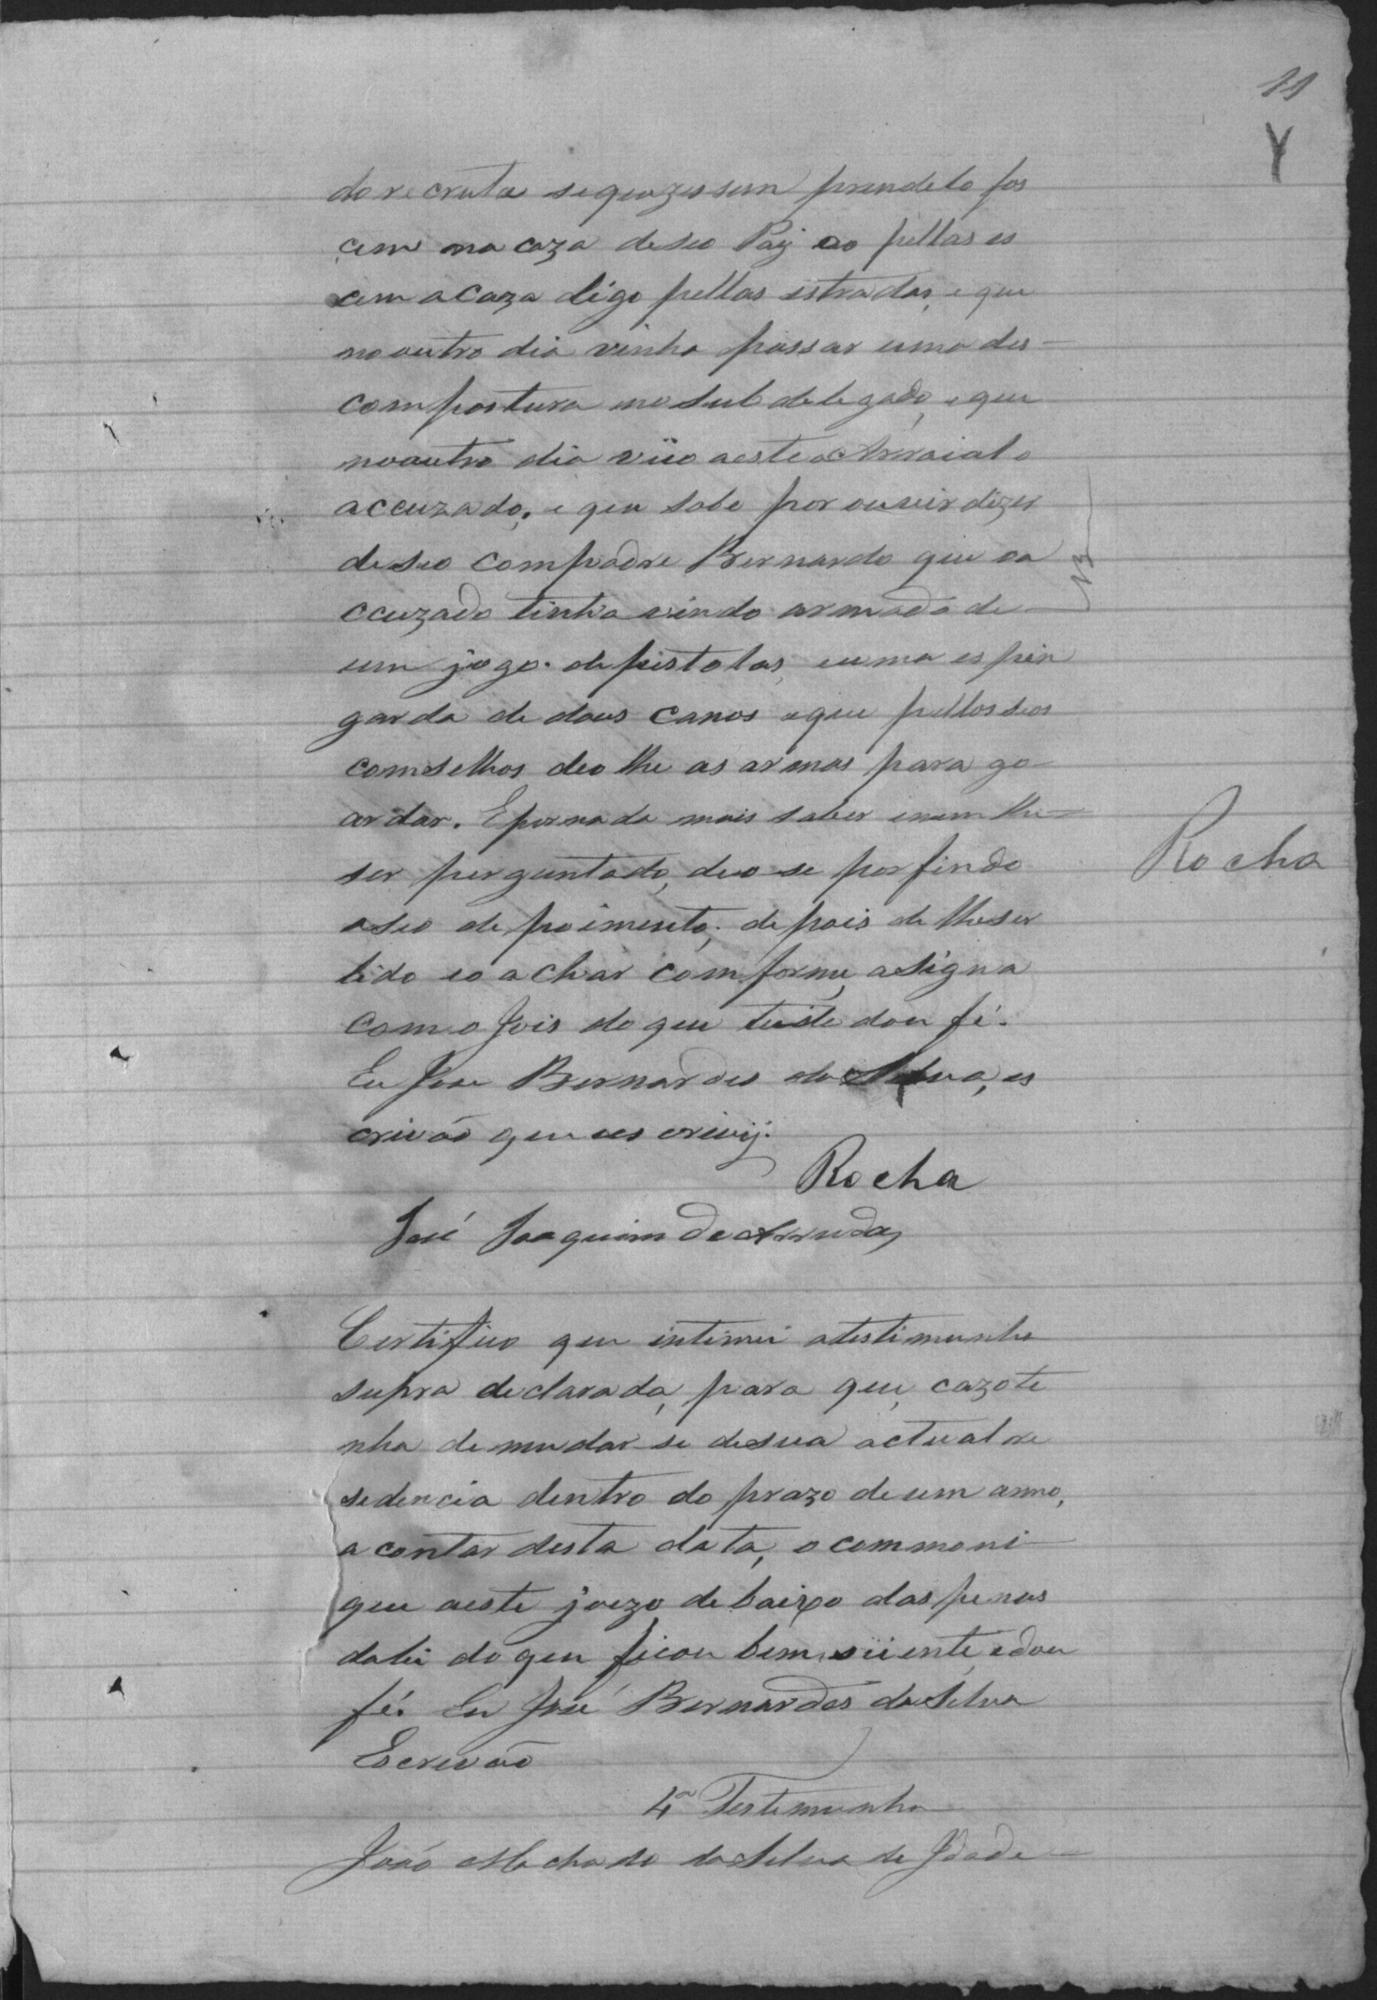 11
do recruta se quizessem prendelo fos
cem na caza de seo Pay ao pellas es
cem a caza digo pellas estradas, e que
no outro dia vinha passar uma des-
compostura no sub delegado, e que
no outro dia viio a este Arraial o
accuzado, e que sabe por ouvir dizer
de seo compadre Bernardo que oa
ccuzado tinha vindo armado de
um jogo de pistolas, e uma espin
garda de dous canos e que pellos seos
comselhos deo lhe as armas para go-
ardar. E por nada mais saber e nem lhe
ser perguntado, deo se por findo
Rocha
o seo depoimento, depois de lhe ser
lido e o achar comforme, asigna
com o Jois do que tudo dou fé.
Eu Jose Bernardes da Silva, es
crivão que ues crivy.
Rocha
José Joaquim de Arruda
Certifico que intimei a testimunha
supra declarada, para que, cazo te
nha de mudar se de sua actual re
sedencia dentro do prazo de um anno,
a contar desta data, o commoni-
que a este joizo, debaixo das penas
da lei do que ficou bem siiente, e dou
fé. Eu José Bernardes da Silva
Escrivão
4ª Testemunha
João Machado da Silva de Idade